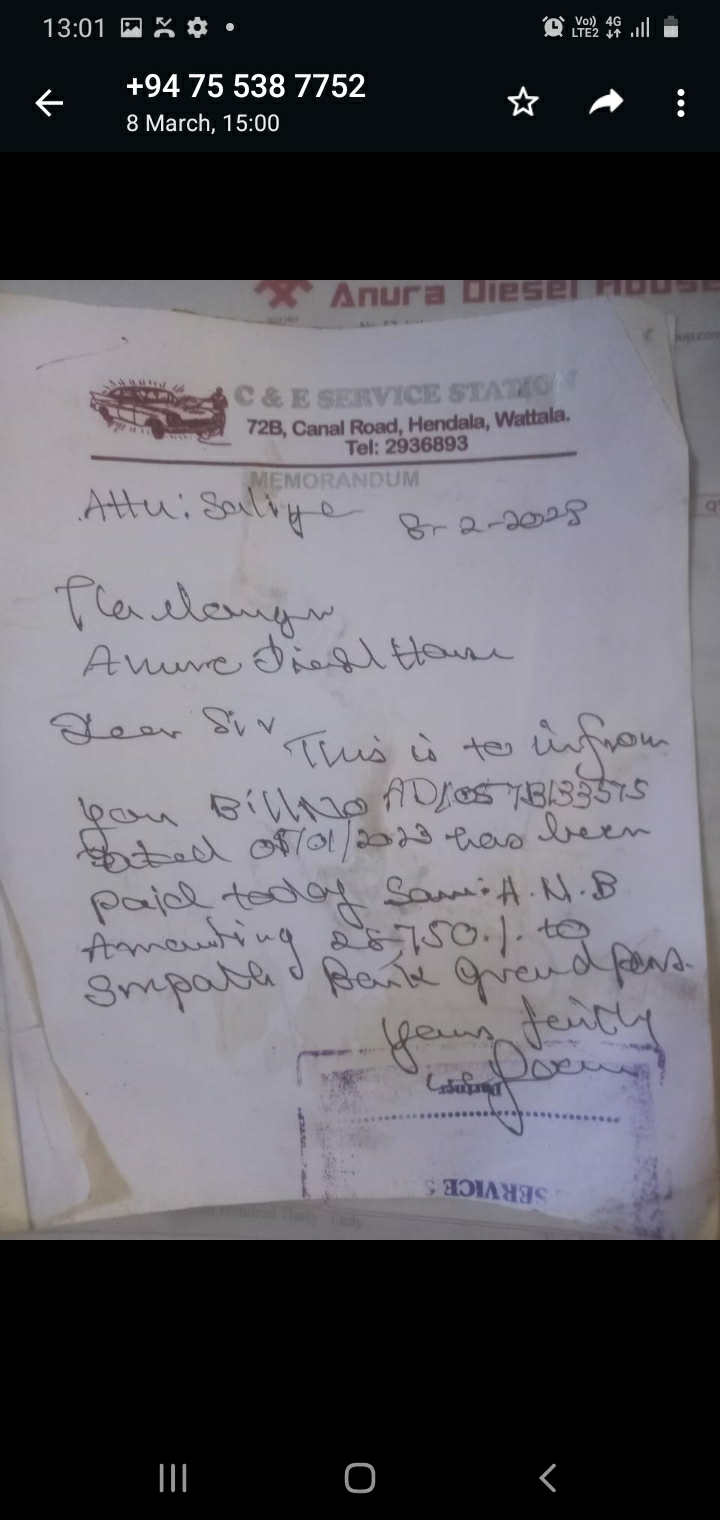 13:01
Vo)) LTE2 4G
+94 75 538 7752
8 March, 15:00
Anura Diesel House
C & E SERVICE STATION
72B, Canal Road, Hendala, Wattala.
Tel: 2936893
MEMORANDUM
Attn: Saliya
8-2-2023
The Manager
Anura Diesel House
Dear Sir
This is to infrom
you Bill No
dated 05/01/2023 has been
paid today A.N.B
Amounting 750./. to
Smpath Bank Grandpass.
Yours
Partner
SERVICE S
Hundred Thirty Only